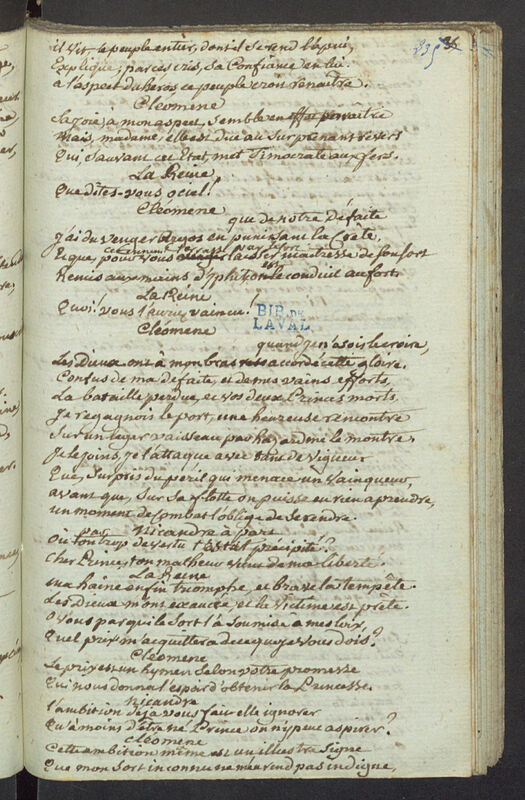 235 35
il voit le peuple entier, dont il se rend l'apui,
Explique, par ces cris, sa Confiance en lui.
a l'aspect du héros ce peuple croit renaître.
Cléomene
Sa joie, a mon aspect, semble en effet paraître
Mais, madame, elle est due au surprenant revers
Qui, sauvant cet Etat, met Timocrate aux fers.
La Reine
Que dites-vous o ciel!
Cléomene
que de notre défaite
J'ai du venger Argos en punissant la Crète,
Et que pour vous laisser maitresse de son sort
Remis aux mains d'Iphite on le conduit au fort.
La Reine
Quoi! vous l'auriez vaincu!
BIB. DE
LAVAL
Cléomene
quand je n'osois le croire,
Les Dieux ont à mon bras accordé cette gloire.
Confus de ma défaite, et de mes vains efforts,
La bataille perdue, et vos deux Princes morts,
Je regagnois le port, une heureuse rencontre
Sur un leger vaisseau par hazard me le montre.
Je le joins, je l'attaque avec tant de vigueur
Que, Surpris du péril qui menace un vainqueur,
avant que, Sur sa flotte on puisse en rien aprendre,
un moment de Combat l'oblige de se rendre.
Nicandre a part
Où ton trop de vertu t'a-t-il précipité?
Cher Prince, ton malheur vient de ma liberté.
La Reine
ma haine enfin triomphe, et brave la tempête.
Les Dieux m'ont exaucée, et la victime est prête.
O vous par qui le Sort l'a soumise a mes loix,
Quel prix m'acquittera de ce que je vous dois?
Cléomene
Le prix est un hymen selon votre promesse
Qui nous donna l'espoir d'obtenir la Princesse.
Nicandre
l'ambition déjà vous fait elle ignorer
Qu'à moins d'être né Prince on n'y peut aspirer?
Cléomene
Cette ambition même est un illustre Signe
Que mon Sort inconnu ne m'en rend pas indigne,